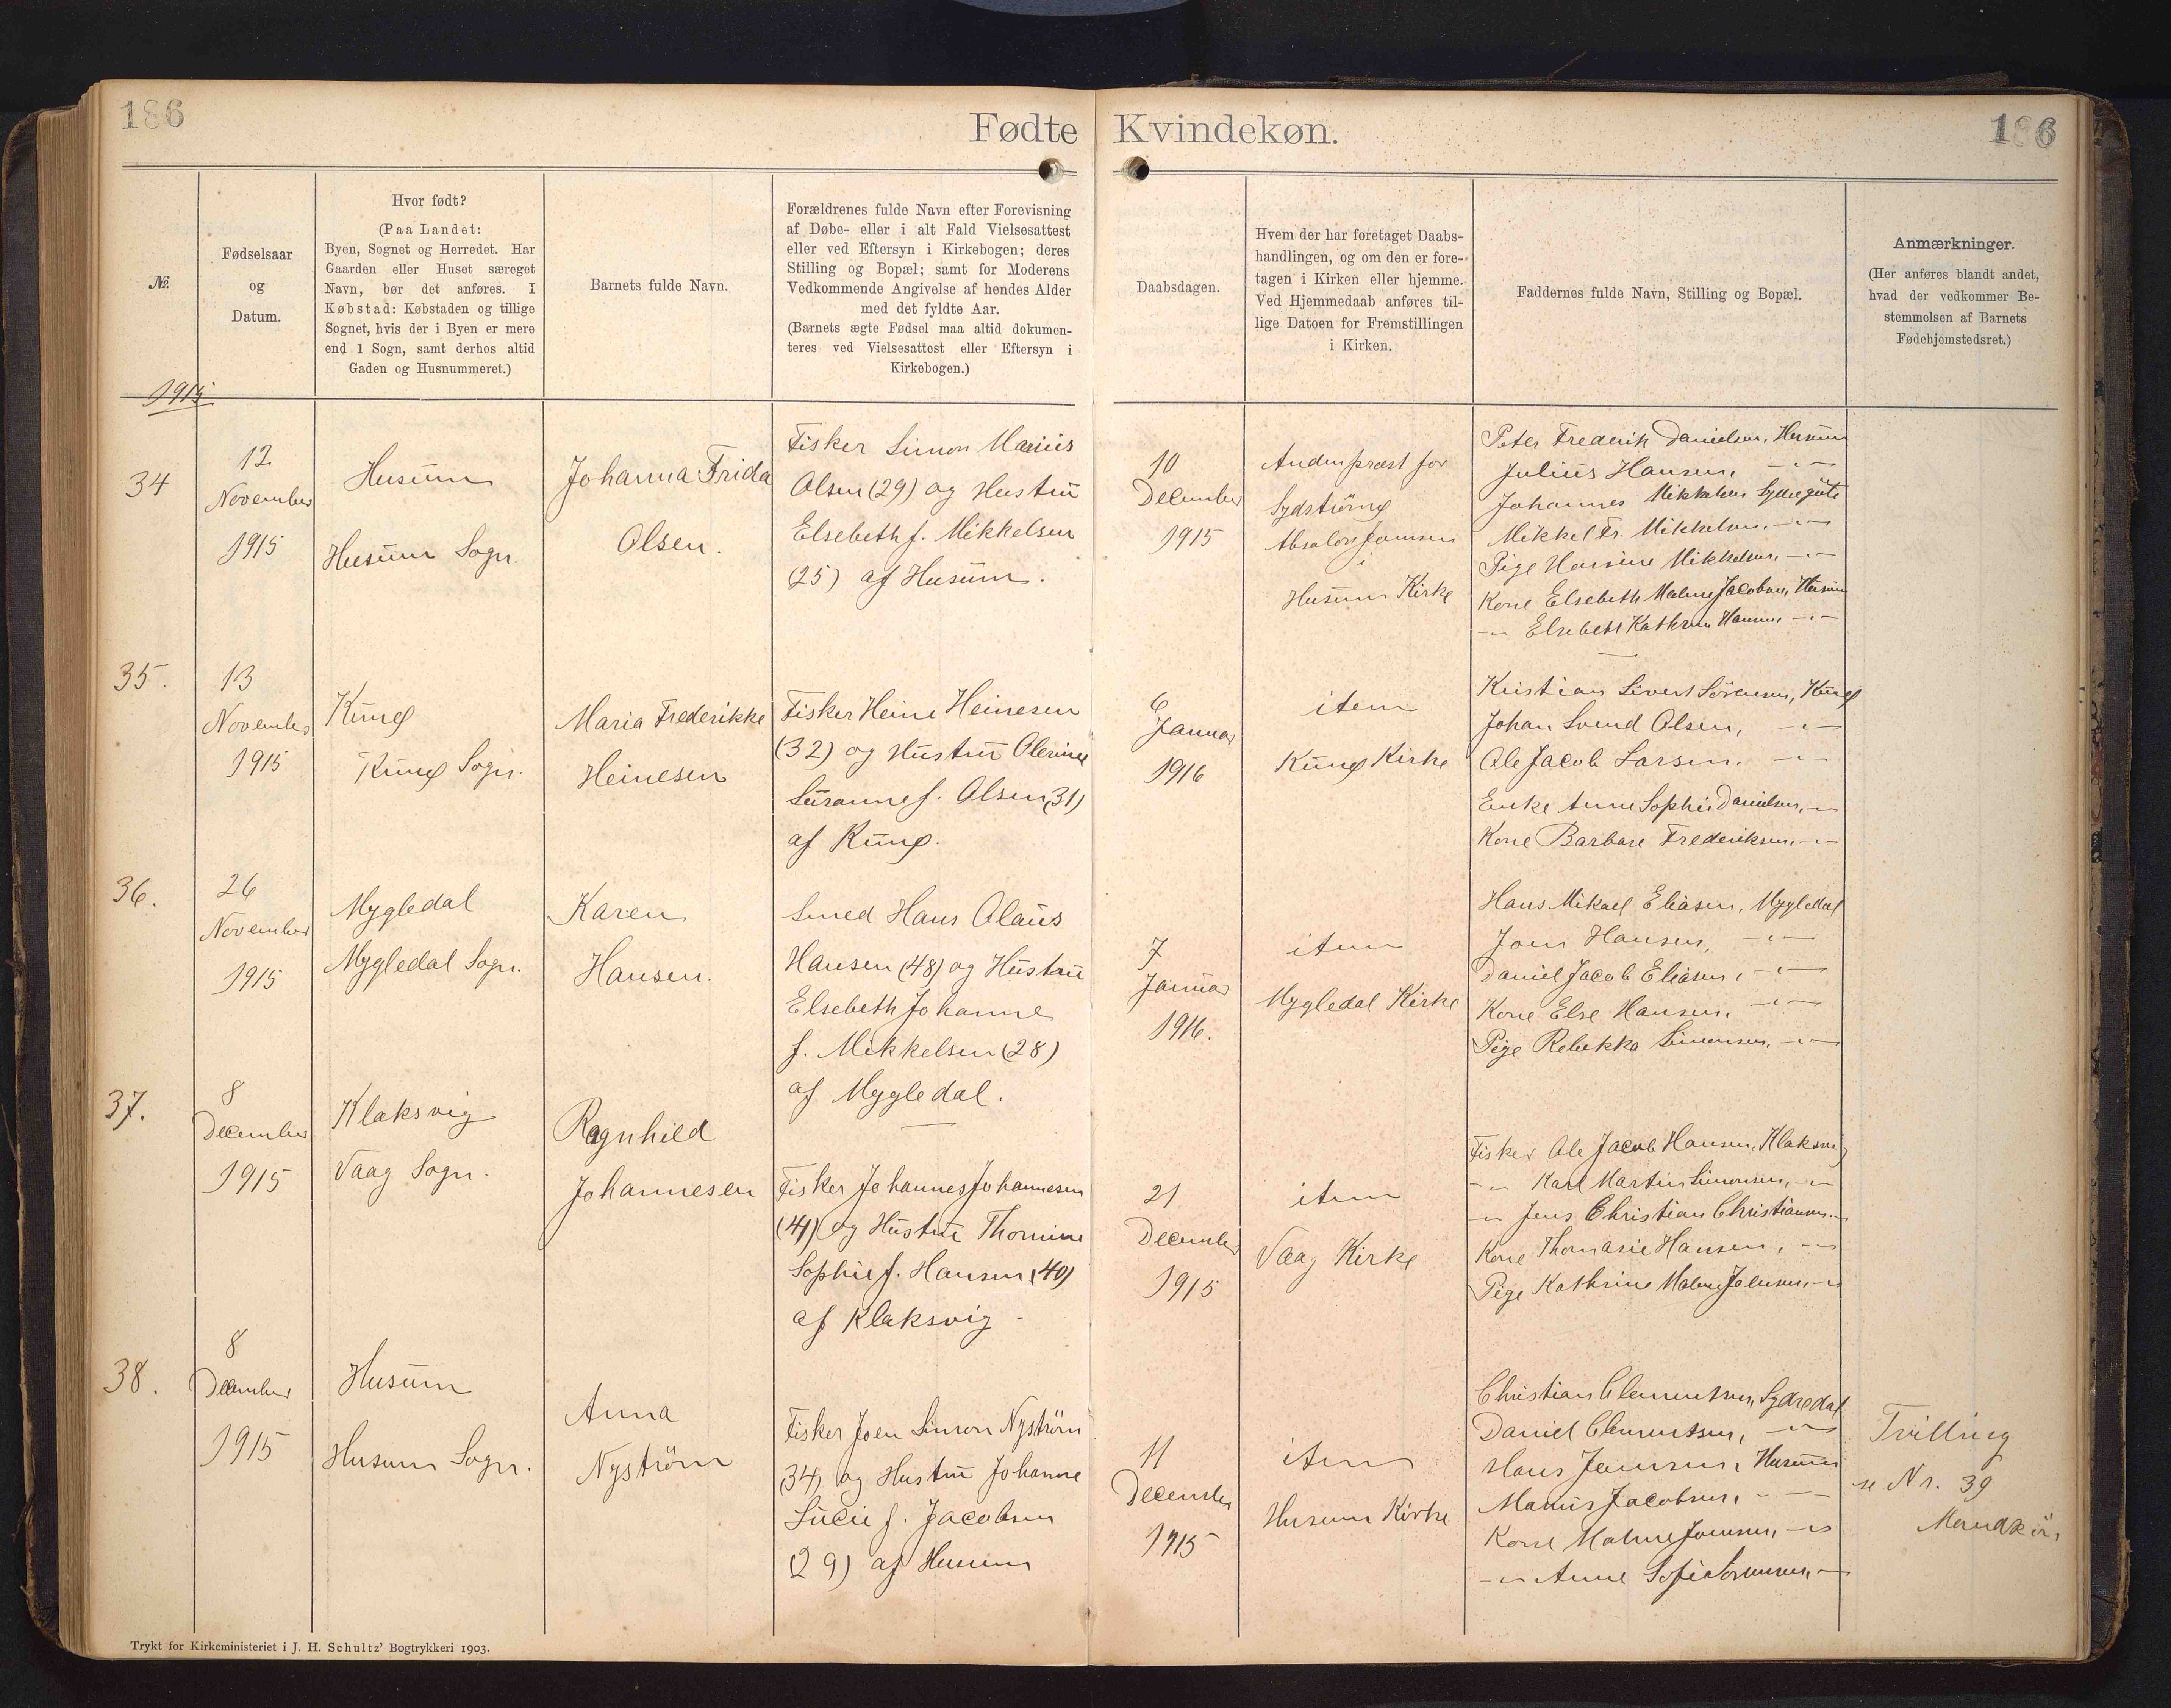 186
Fødte Kvindekøn.
186
№
Fødselsaar
og
Datum.
Hvor født?
(Paa Landet:
Byen, Sognet og Herredet. Har
Gaarden eller Huset særeget
Navn, bør det anføres. I
Købstad: Købstaden og tillige
Sognet, hvis der i Byen er mere
end 1 Sogn, samt derhos altid
Gaden og Husnummeret.)
Barnets fulde Navn.
Forældrenes fulde Navn efter Forevisning
af Døbe- eller i alt Fald Vielsesattest
eller ved Eftersyn i Kirkebogen; deres
Stilling og Bopæl; samt for Moderens
Vedkommende Angivelse af hendes Alder
med det fyldte Aar.
(Barnets ægte Fødsel maa altid dokumen-
teres ved Vielsesattest eller Eftersyn i
Kirkebogen.)
Daabsdagen.
Hvem der har foretaget Daabs-
handlingen, og om den er fore-
tagen i Kirken eller hjemme.
Ved Hjemmedaab anføres til-
lige Datoen for Fremstillingen
i Kirken.
Faddernes fulde Navn, Stilling og Bopæl.
Anmærkninger.
(Her anføres blandt andet,
hvad der vedkommer Be-
stemmelsen af Barnets
Fødehjemstedsret.)
1915
34
12
November
1915
Husum
Husum Sogn.
Johanna Frida
Olsen.
Fisker Simon Marius
Olsen (29) og Hustru
Elsebeth f. Mikkelsen
(25) af Husum.
10
December
1915
Andenpræst for
Sydstrømø
Absalon Joensen
i
Husum Kirke
Peter Frederik Danielsen, Husum
Julius Hansen, -"-
Johannes Mikkelsen Sydregøte
Mikkel Fr. Mikkelsen, -"-
Pige Hansine Mikkelsen, -"-
Kone Elsebeth Malene Jacobsen, Husum
-"- Elsebeth Kathrine Hansen -"-
35.
13
November
1915
Kunø
Kunø Sogn.
Maria Frederikke
Heinesen
Fisker Heine Heinesen
(32) og Hustru Olevine
Susanne f. Olsen (31)
af Kunø.
6
Januar
1916
item
Kunø Kirke
Kristian Sivert Sørensen, Kunø
Johan Svend Olsen, -"-
Ole Jacob Larsen, -"-
Enke Anne Sophie Danielsen, -"-
Kone Barbare Frederiksen, -"-
36.
26
November
1915
Mygledal
Mygledal Sogn.
Karen
Hansen.
Smed Hans Olaus
Hansen (48) og Hustru
Elsebeth Johanne
f. Mikkelsen (28)
af Mygledal.
7
Januar
1916.
item
Mygledal Kirke
Hans Mikael Eliasen, Mygledal
Joen Hansen, -"-
Daniel Jacob Eliasen, -"-
Kone Else Hansen, -"-
Pige Rebekka Simonsen, -"-
37.
8
December
1915
Klaksvig
Vaag Sogn.
Ragnhild
Johannesen
Fisker Johannes Johannesen
(41) og Hustru Thomine
Sophie f. Hansen (40)
af Klaksvig
21
December
1915
item
Vaag Kirke
Fisker Ole Jacob Hansen, Klaksvig
-"- Karl Martin Simonsen, -"-
-"- Jens Christian Christiansen -"-
Kone Thomasie Hansen, -"-
Pige Kathrine Malene Joensen, -"-
38.
8
December
1915
Husum
Husum Sogn.
Anna
Nyström
Fisker Joen Simon Nyström
(34) og Hustru Johanne
Lucie f. Jacobsen
(29) af Husum
11
December
1915
item
Husum Kirke
Christian Clementsen, Sydredal
Daniel Clementsen, -"-
Hans Joensen, Husum
Marius Jacobsen, -"-
Kone Malene Joensen, -"-
-"- Anne Sofie Sørensen, -"-
Tvilling
se Nr. 39
Mandkøn
Trykt for Kirkeministeriet i J. H. Schultz' Bogtrykkeri 1903.